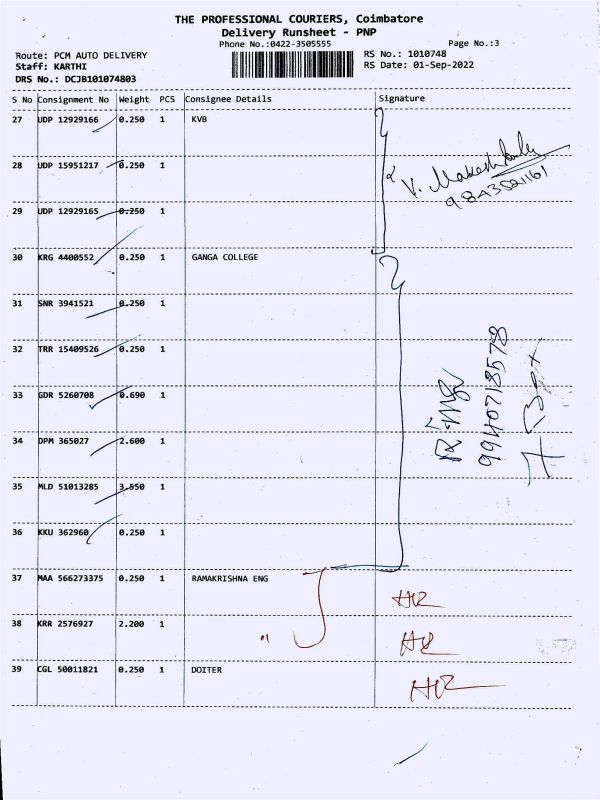 THE PROFESSIONAL COURIERS, Coimbatore
Delivery Runsheet - PNP
Phone No.:0422-3505555
Page No.:3
Route: PCM AUTO DELIVERY
RS No.: 1010748
Staff: KARTHI
RS Date: 01-Sep-2022
DRS No.: DCJB101074803
S No Consignment No Weight PCS Consignee Details Signature
27 UDP 12929166 0.250 1 KVB
28 UDP 15951217 0.250 1
V. Makesh
9843521161
29 UDP 12929165 0.250 1
30 KRG 4400552 0.250 1 GANGA COLLEGE
31 SNR 3941521 0.250 1
32 TRR 15409526 0.250 1
33 GDR 5260708 0.690 1
9940718578
7 Box
34 DPM 365027 2.600 1
35 MLD 51013285 3.550 1
36 KKU 362960 0.250 1
37 MAA 566273375 0.250 1 RAMAKRISHNA ENG
38 KRR 2576927 2.200 1 "
39 CGL 50011821 0.250 1 DOITER